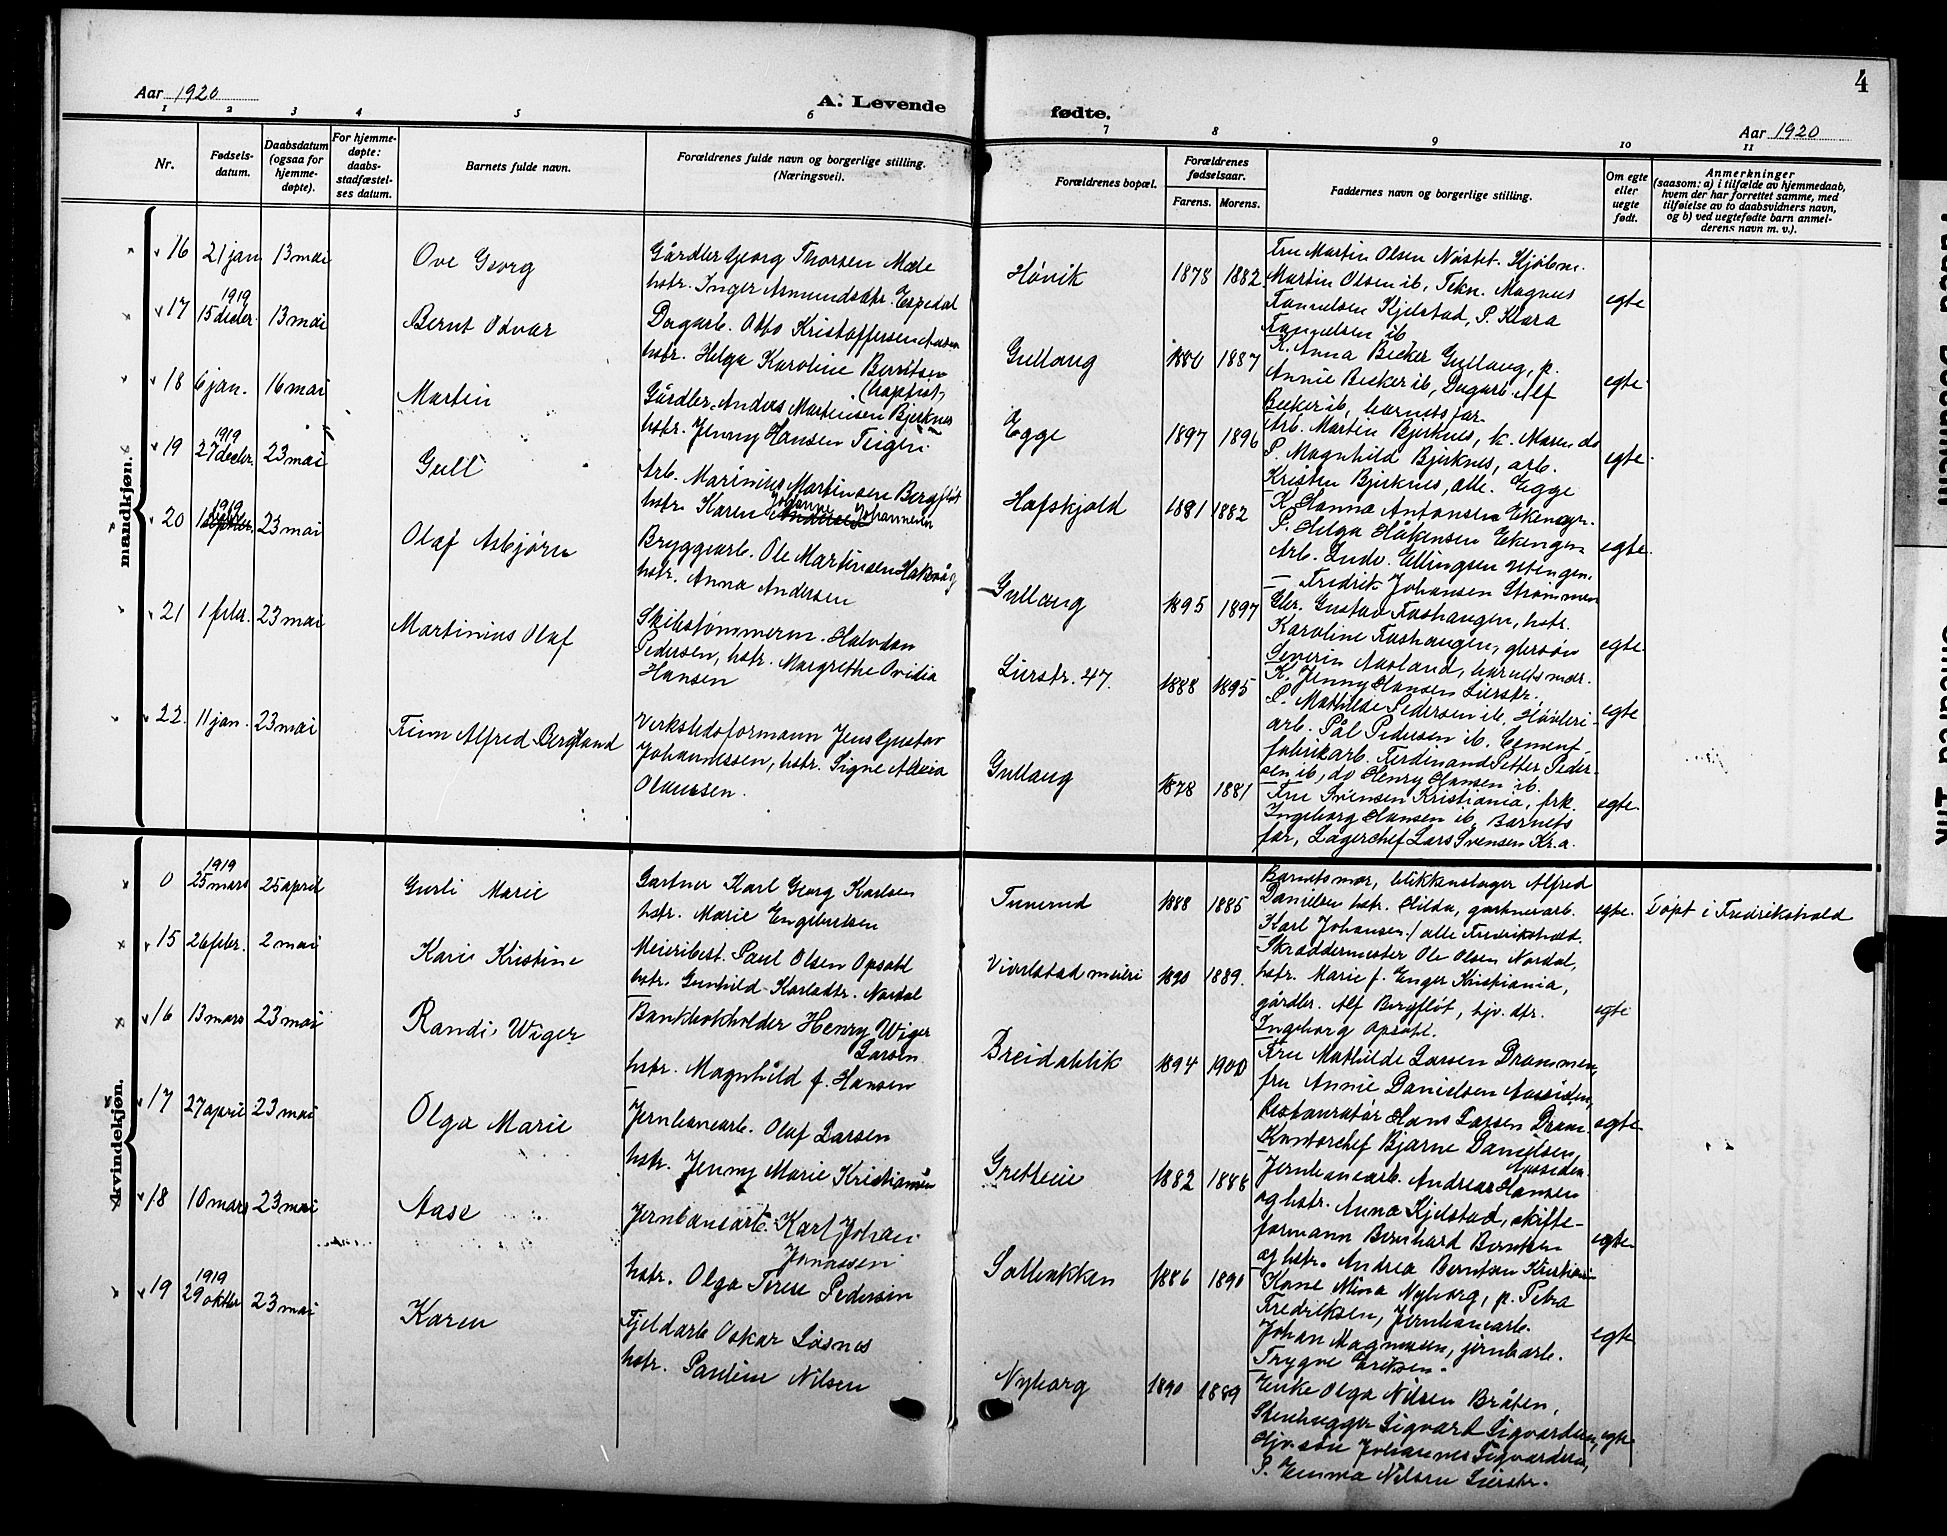 4
Aar 1920
A. Levende
fødte.
Aar 1920
1 2 3 4 5 6 7 8 9 10 11
Nr.
Fødsels-
datum.
Daabsdatum
(ogsaa for
hjemme-
døpte).
For hjemme-
døpte:
daabs-
stadfæstel-
ses datum.
Barnets fulde navn.
Forældrenes fulde navn og borgerlige stilling.
(Næringsvei).
Forældrenes bopæl.
Forældrenes
fødselsaar.
Farens. Morens.
Faddernes navn og borgerlige stilling.
Om egte
eller
uegte
født.
Anmerkninger
(saasom: a) i tilfælde av hjemmedaab,
hvem der har forrettet samme, med
tilføielse av to daabsvidners navn,
og b) ved uegtefødte barn anmel-
derens navn m. v.).
mandkjøn.
16 21 jan 13 mai
Ove Georg
Gårdbr Georg Thorsen Mæle
hstr. Inger Asmundsdtr. Espedal
Høvik
1878 1882
Fru Martin Olsen Nøstet. Kjøbm.
Martin Olsen ib, Tekn. Magnus
Kjelstad, P. Klara
ib
egte
17 1919
15 decbr. 13 mai
Bernt Odvar
Dagarb. Otto Kristoffersen
hstr. Helga Karoline Berntsen
(baptist)
Gullaug
1880 1887
K. Anna Becker Gullaug, p.
Annie Becker ib, Dagarb. Alf
Becker ib, barnets far
egte
18 6 jan. 16 mai
Martin
Gårdbr. Anders Martinsen Bjerknes
hstr. Jenny Hansen Teigen
Egge
1897 1896
Arb. Martin Bjerknes, k. Maren do
P. Magnhild Bjerknes, arb.
Kristen Bjerknes, alle. Egge
egte
19 1919
27 decbr. 23 mai
Gult
Arb. Marinius Martinsen Bergfløt
hstr. Karen Johanne Johannesen
Hafskjold
1881 1882
K. Hanna Antonsen Ekengn.
P. Helga Håkensen Ekengen
Arb. Ludv. Ellingsen Utengen.
Fredrik Johansen Strømmen
egte
20 1919
23 mai
Olaf Asbjørn
Bryggearb. Ole Martinsen
hstr. Anna Andersen
Gullaug
1895 1897
Gbr. Gustav Foshaugen, hstr.
Karoline Foshaugen, gbrsøn
Severin Aasland, barnets mor.
egte
21 1 febr. 23 mai
Martinius Olaf
Skibstømmerm. Halvdan
Pedersen, hstr. Margrethe Ovidia
Hansen
Lierstr. 47.
1888 1895
K. Jenny Hansen Lierstr.
P. Mathilde Pedersen ib, Høvleri-
arb. Pål Pedersen ib. Cement-
fabrikarb. Ferdinand Petter Peder-
sen ib, do Henry Hansen ib.
egte
22. 11 jan. 23 mai
Finn Alfred Bergland
Verkstedsformann Jens Gustav
Johannessen, hstr. Signe Alexia
Olaussen.
Gullaug
1878 1881
Fru Svensen Kristiania, frk.
Ingeborg Hansen ib, Barnets
far, Lagerchef Lars Svensen Kr.a.
egte
kvindekjøn.
0 1919
25 mars 25 april
Gurli Marie
Gartner Karl Georg Karlsen
hstr. Marie Engebretsen
Tuverud
1888 1885
Barnets mor, blikkenslager Alfred
Danielsen hstr. Hilda, gartnerarb.
Karl Johansen / alle Fredrikshald.
egte. Døpt i Fredrikshald
15 26 febr. 2 mai
Kari Kristine
Meieribest. Paul Olsen Opsahl
hstr. Gunhild Karlsdtr. Nordal
Vivelstad meieri
1890 1889.
Skræddermester Ole Olsen Nordal,
hstr. Marie f. Enger Kristiania,
gårdbr. Alf Bergfløt, hjv. dtr.
Ingeborg Opsahl.
egte
16 13 mars 23 mai
Randi Wiger
Bankbokholder Henry Wiger
Larsen
hstr. Magnhild f. Hansen
Breidablik
1894 1900
Fru Mathilde Larsen Drammen,
fru Annie Danielsen Aassiden,
Restauratør Hans Larsen Dram.
Kontorchef Bjarne Danielsen,
Aassiden
egte
17 27 april 23 mai
Olga Marie
Jernbanearb. Olaf Larsen
hstr. Jenny Marie Kristiansen
1882 1888
Jernbanearb. Andreas Hansen
og hstr. Anna Kjelstad, skifte-
formann Bernhard Berntsen
og hstr. Andrea Berntsen
egte
18 10 mars 23 mai
Aase
Jernbanearb. Karl Johan
Jonassen
hstr. Olga Terese Pedersen
Solbakken
1886 1890
Kone Mina Nyborg, p. Petra
Fredriksen, Jernbanearb.
Johan Magnussen, jernb.arb.
Trygve Eriksen.
egte
19 1919
29 oktbr 23 mai
Karen
Fjeldarb Oskar Løsnes
hstr. Pauline Nilsen
Nyborg
1890 1889
Enke Olga Nilsen Bråten,
Stenhugger Sigvard Sigvardsen,
Hjv. søn Johannes Sigvardsen,
P. Emma Nilsen Lierstr.
egte